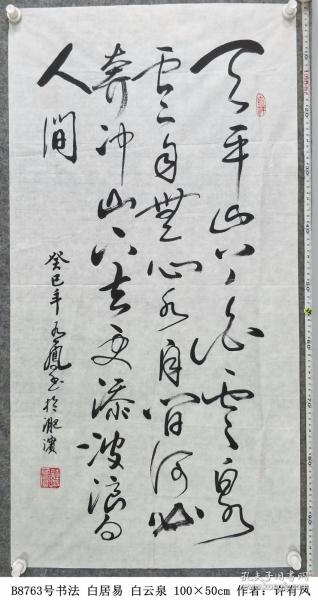 天平山上白雲泉
雲自無心水自閒何必
奔冲山下去更添波浪向
人間
癸巳年有鳳书於淝濱
B8763号书法 白居易 白云泉 100×50cm 作者：许有凤